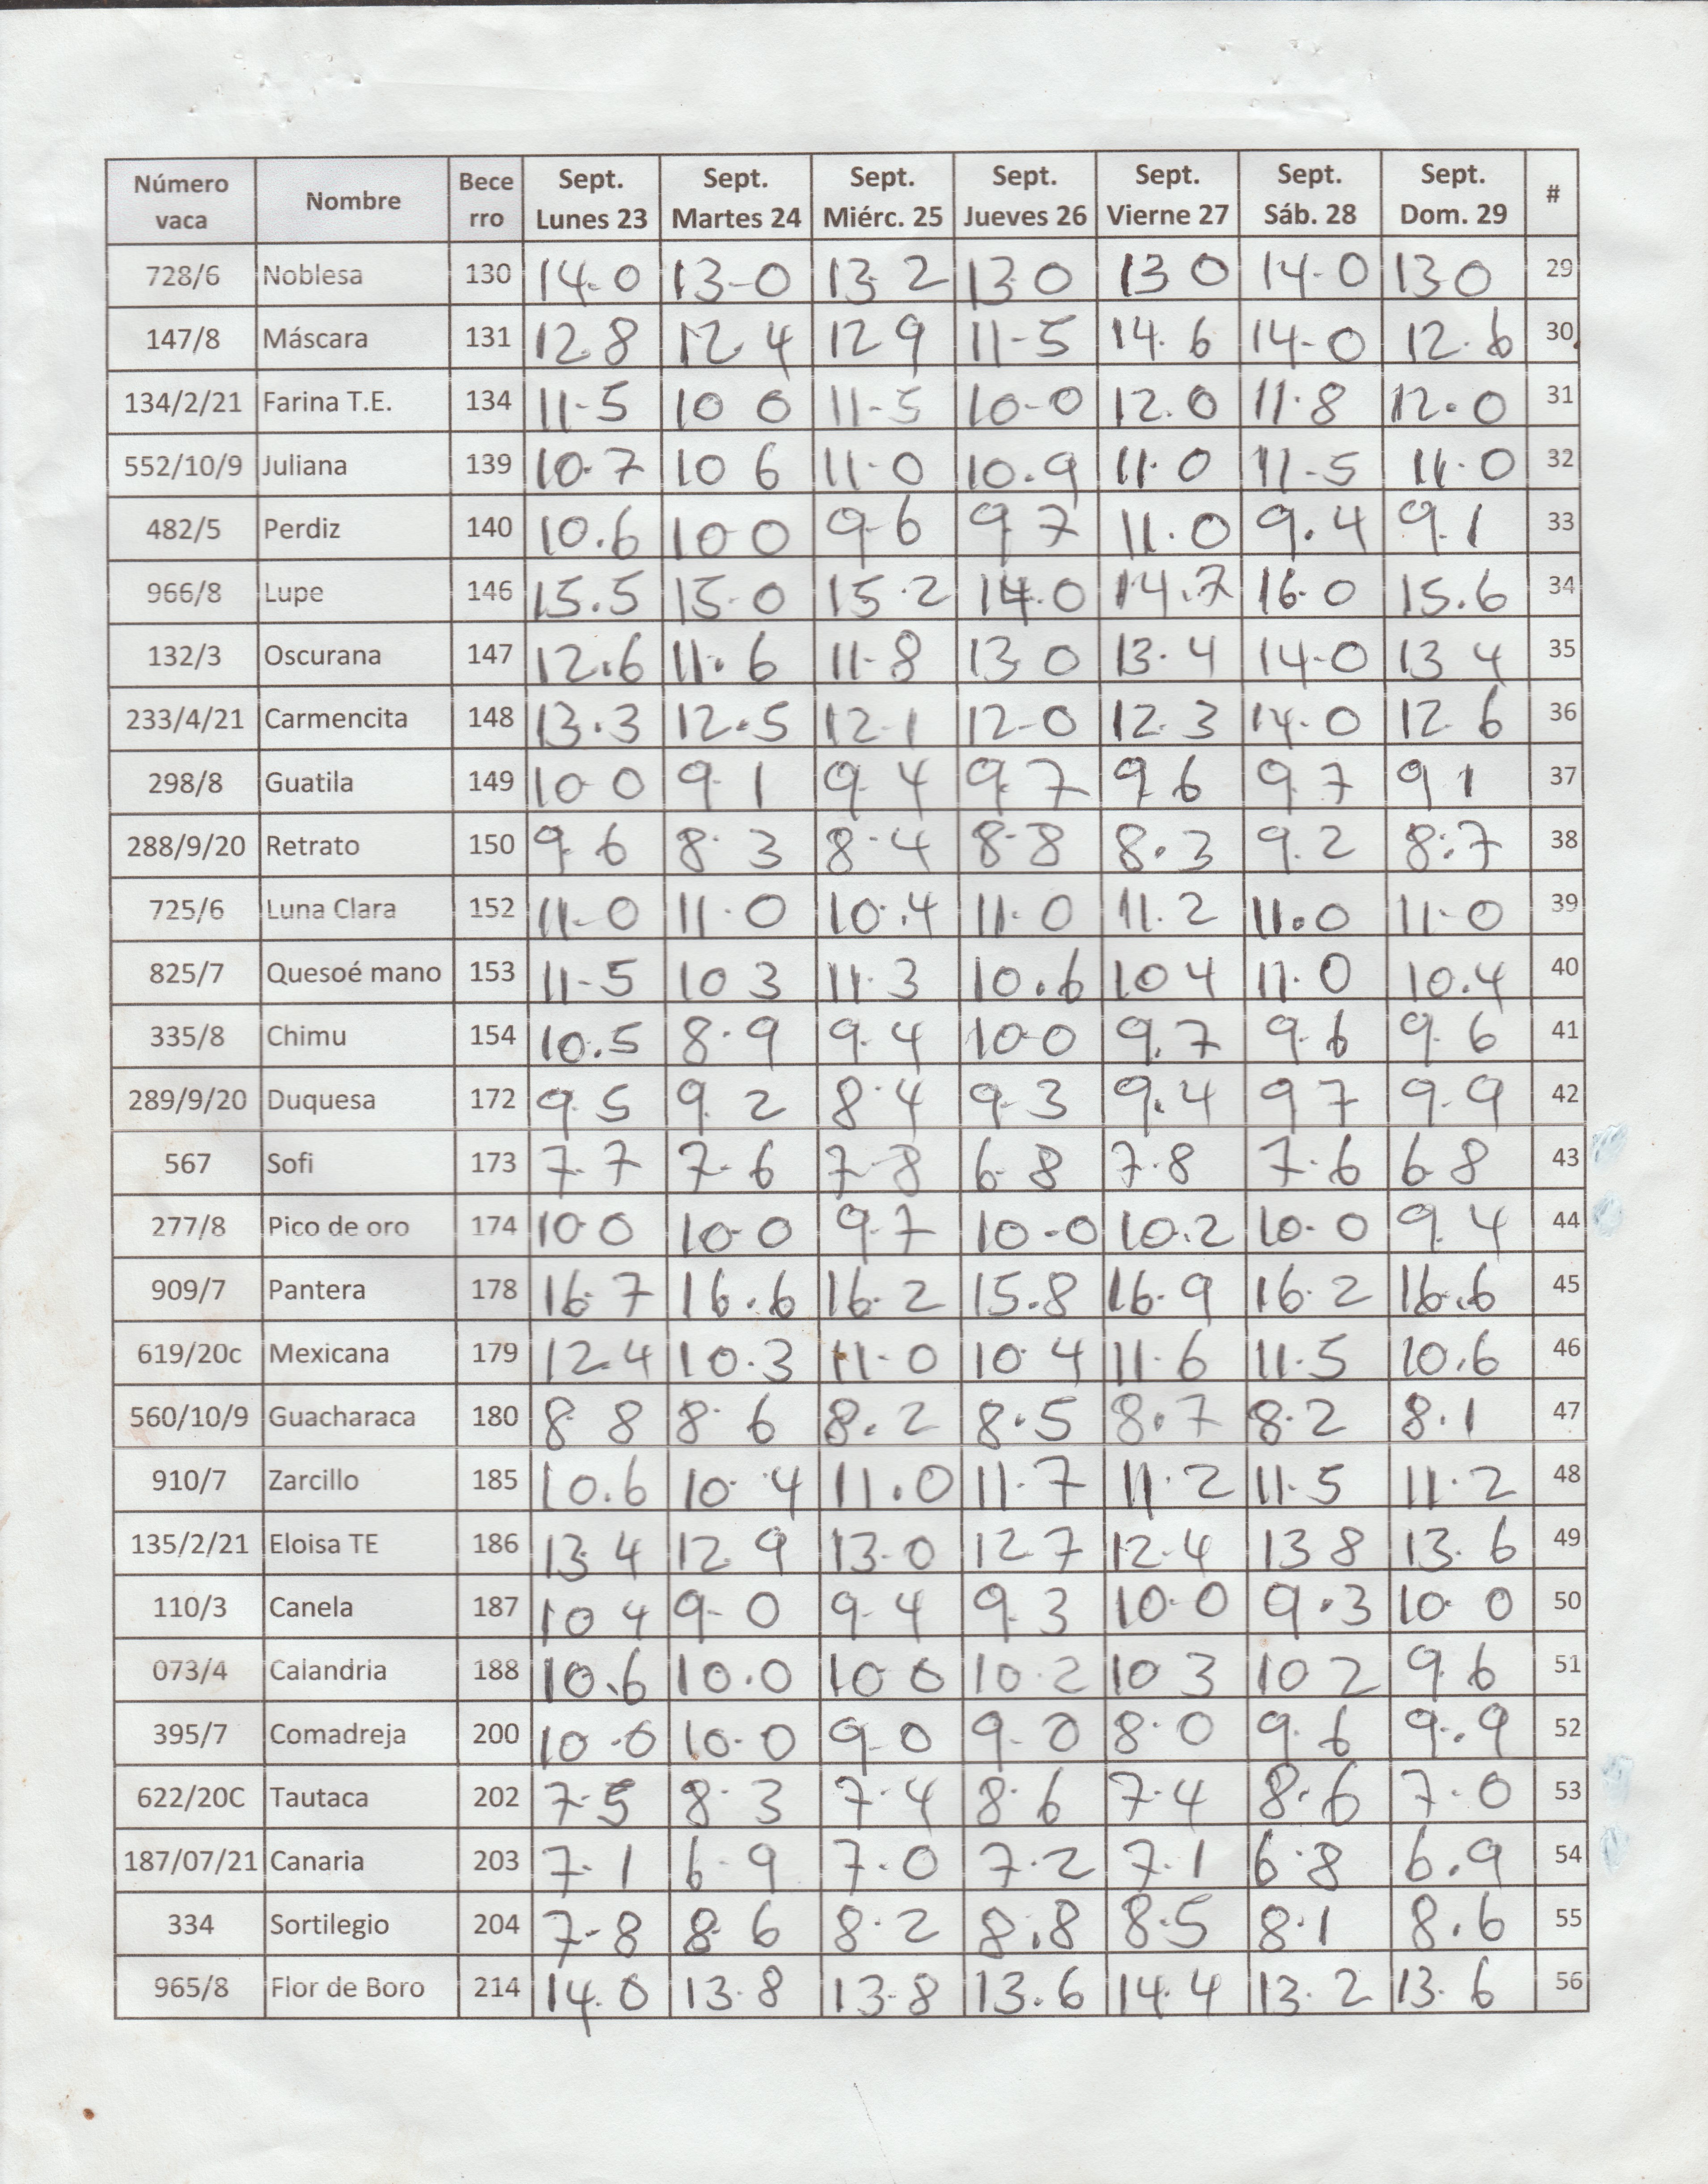 Número vaca Nombre Bece rro Sept. Lunes 23 Sept. Martes 24 Sept. Miérc. 25 Sept. Jueves 26 Sept. Vierne 27 Sept. Sáb. 28 Sept. Dom. 29 #
728/6 Noblesa 130 14.0 13-0 13.2 13.0 13 0 14-0 13 0 29
147/8 Máscara 131 12 8 12.4 12 9 11-5 14.6 14-0 12.6 30
134/2/21 Farina T.E. 134 11-5 10 0 11-5 10-0 12.0 11.8 12.0 31
552/10/9 Juliana 139 10.7 10 6 11.0 10.9 11.0 11-5 11.0 32
482/5 Perdiz 140 10.6 10 0 9-6 9.7 11.0 9.4 9.1 33
966/8 Lupe 146 15.5 15-0 15.2 14.0 14.7 16.0 15.6 34
132/3 Oscurana 147 12.6 11.6 11-8 13 0 13.4 14-0 13 4 35
233/4/21 Carmencita 148 13.3 12.5 12-1 12-0 12.3 14.0 12 6 36
298/8 Guatila 149 10 0 9.1 9.4 9.7 9.6 9.7 9 1 37
288/9/20 Retrato 150 9.6 8.3 8.4 8.8 8.3 9.2 8.7 38
725/6 Luna Clara 152 11-0 11.0 10.4 11.0 11.2 11.0 11-0 39
825/7 Quesoé mano 153 11-5 10 3 11.3 10.6 10 4 11.0 10.4 40
335/8 Chimu 154 10.5 8.9 9.4 10-0 9.7 9.6 9.6 41
289/9/20 Duquesa 172 9.5 9.2 8.4 9.3 9.4 9 7 9.9 42
567 Sofi 173 7.7 7.6 7-8 6.8 7.8 7.6 6 8 43
277/8 Pico de oro 174 10.0 10-0 9.7 10-0 10.2 10.0 9.4 44
909/7 Pantera 178 16.7 16.6 16.2 15.8 16.9 16.2 16.6 45
619/20c Mexicana 179 12.4 10.3 11-0 10.4 11.6 11.5 10.6 46
560/10/9 Guacharaca 180 8 8 8.6 8.2 8.5 8.7 8.2 8.1 47
910/7 Zarcillo 185 10.6 10.4 11.0 11.7 11.2 11.5 11.2 48
135/2/21 Eloisa TE 186 13.4 12.9 13.0 12 7 12.4 13 8 13.6 49
110/3 Canela 187 10 4 9-0 9-4 9.3 10.0 9.3 10.0 50
073/4 Calandria 188 10.6 10.0 10 0 10.2 10 3 10 2 9.6 51
395/7 Comadreja 200 10.0 10.0 9-0 9-0 8.0 9.6 9.9 52
622/20C Tautaca 202 7.5 8.3 7.4 8.6 7.4 8.6 7.0 53
187/07/21 Canaria 203 7.1 6-9 7.0 7.2 7.1 6.8 6.9 54
334 Sortilegio 204 7-8 8 6 8.2 8.8 8.5 8.1 8.6 55
965/8 Flor de Boro 214 14.0 13.8 13-8 13.6 14.4 13.2 13.6 56